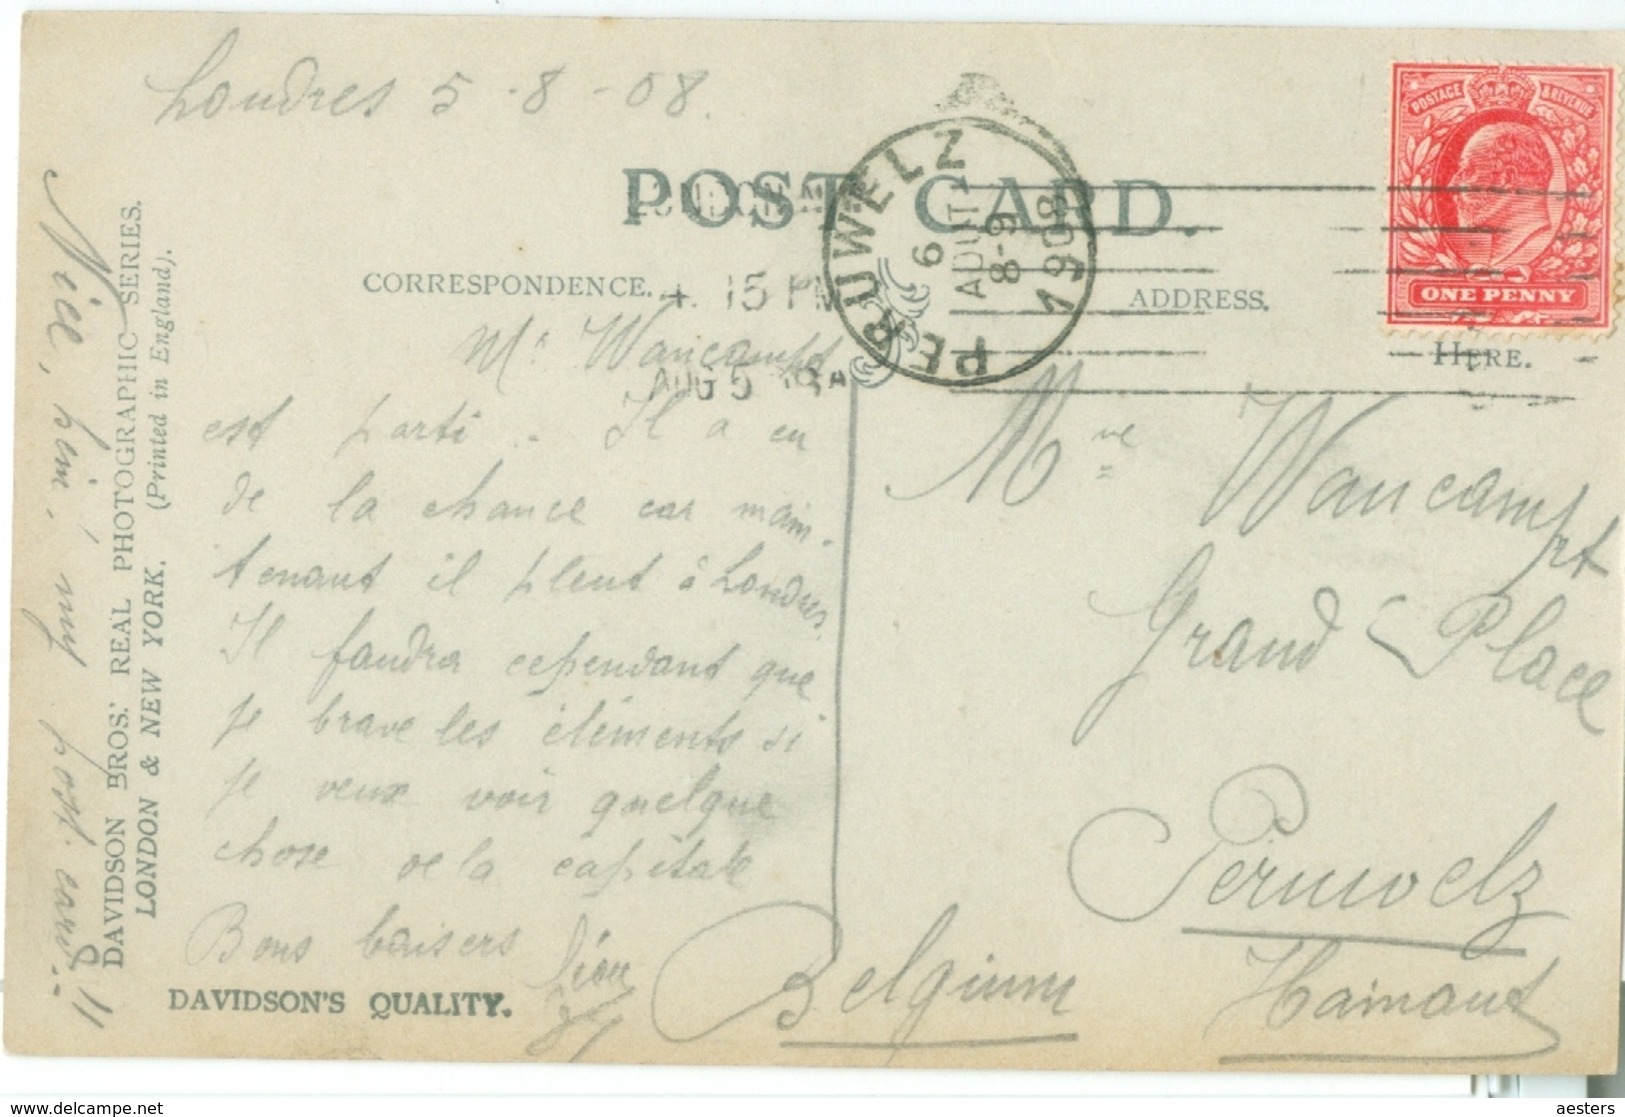 Londres 5-8-08.
POST CARD.
LONDON
4. 15 PM
AUG 5 08
PERUWELZ
6
AOUT
8-9
1908
POSTAGE & REVENUE
ONE PENNY
CORRESPONDENCE.
ADDRESS.
HERE.
Mr Wancampt
est parti. Il a eu
de la chance car main-
tenant il pleut à Londres.
Il faudra cependant que
je brave les éléments si
je veux voir quelque
chose de la capitale
Bons baisers
Léon
Mme Wancampt
Grand Place
Peruwelz
Hainaut
Belgium
Nice, hein! my post card!!
DAVIDSON BROS.' REAL PHOTOGRAPHIC SERIES.
LONDON & NEW YORK. (Printed in England).
DAVIDSON'S QUALITY.
aesters